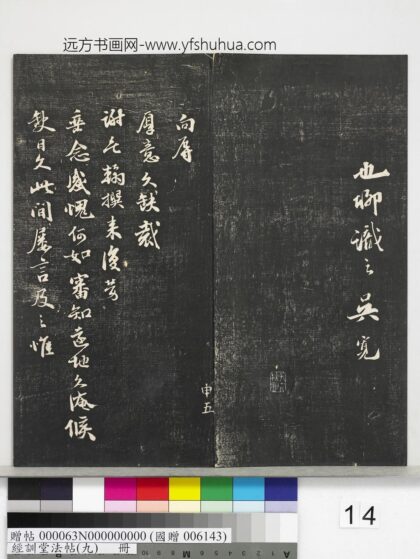 远方书画网-www.yfshuhua.com
也聊識之吳寬
向辱
厚意久缺裁
謝乞翰撰来復荷
垂念感愧何如審知遠地久淹候
缺日久此間屢言及之惟
申五
14
贈帖 000063N000000000 (國贈 006143)
經訓堂法帖(九) 冊